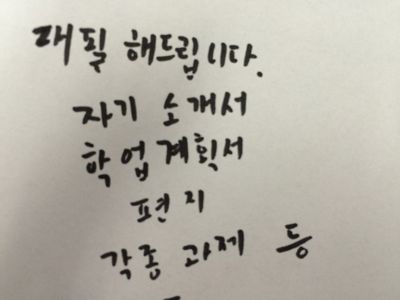 대필 해드립니다.
자기 소개서
학업계획서
편지
각종 과제 등